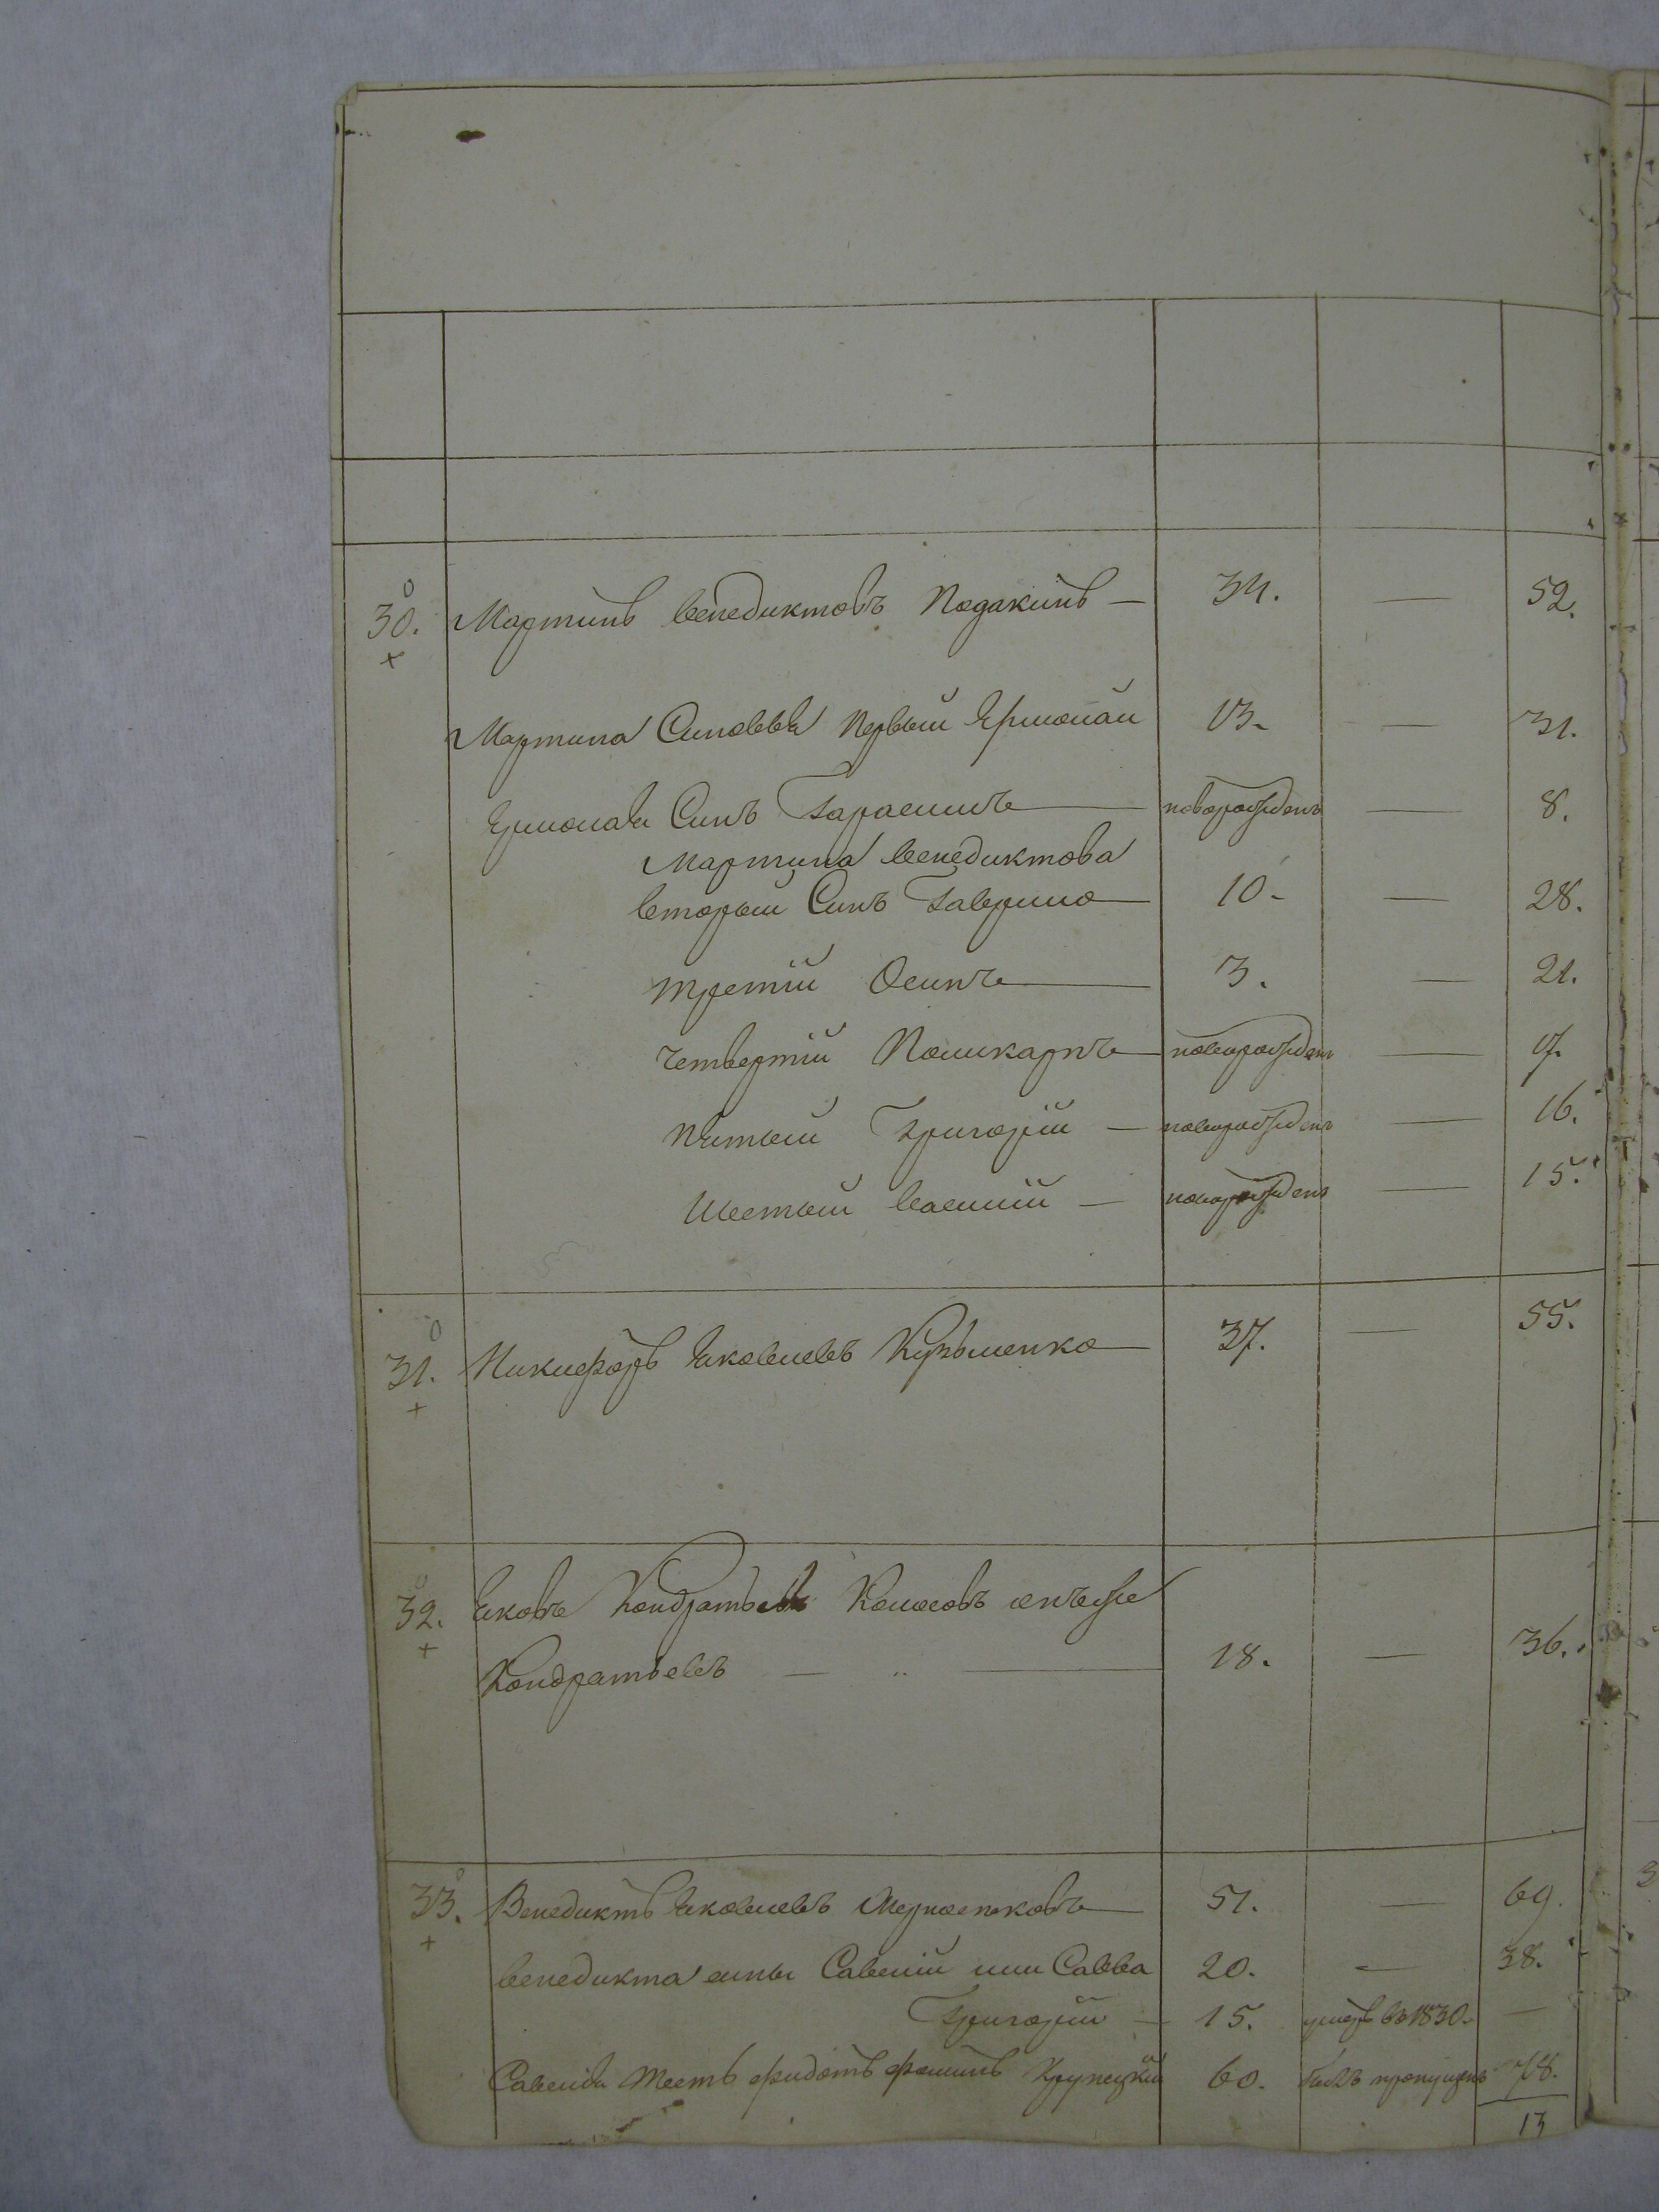 30. Мартинъ Венедиктовъ Подакинъ — 34. — 52.
Мартина Синовья Первый Ермолай 13. — 31.
Ермолая Синъ Гарасимъ — новорожденъ — 8.
Мартина Венедиктова
второй Синъ Гаврило — 10 — 28.
третій Осипъ — 3. — 21.
четвертій Поликарпъ — новорожденъ — 17.
пятый Григорій — новорожденъ — 16.
Шестый Василій — новорожденъ — 15.
31. Никифоръ Яковлевъ Кузьменко — 37. — 55.
32. Яковъ Кондратьевъ Колосовъ онъ же
Кондратьевъ — 18. — 36.
33. Венедиктъ Яковлевъ — 51. — 69.
Венедикта сыны Савелий или Савва 20. — 38.
Григорій — 15. умеръ въ 1830. —
Савелія Тесть Федотъ Фоминъ Крупецкій 60. былъ пропущенъ 78.
13